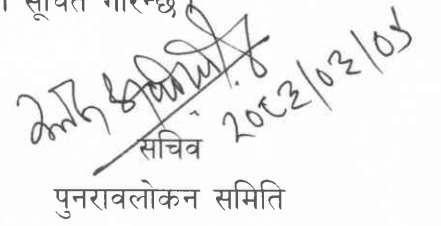 सूचित गरिन्छ।
२०८२/०३/०५
सचिव
पुनरावलोकन समिति